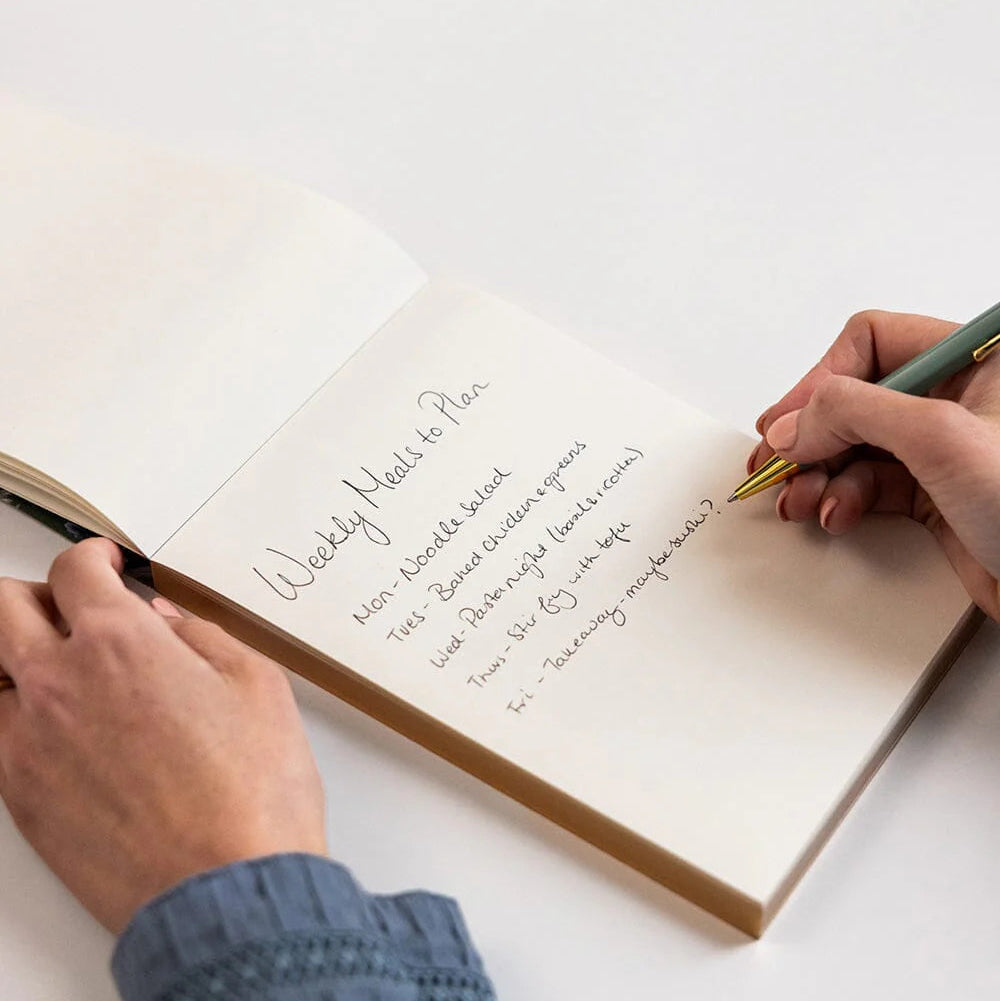 Weekly Meals to Plan
Mon - Noodle salad
Tues - Baked chicken & greens
Wed - Pasta night (basil & ricotta)
Thurs - Stir fry with tofu
Fri - Takeaway - maybe sushi?